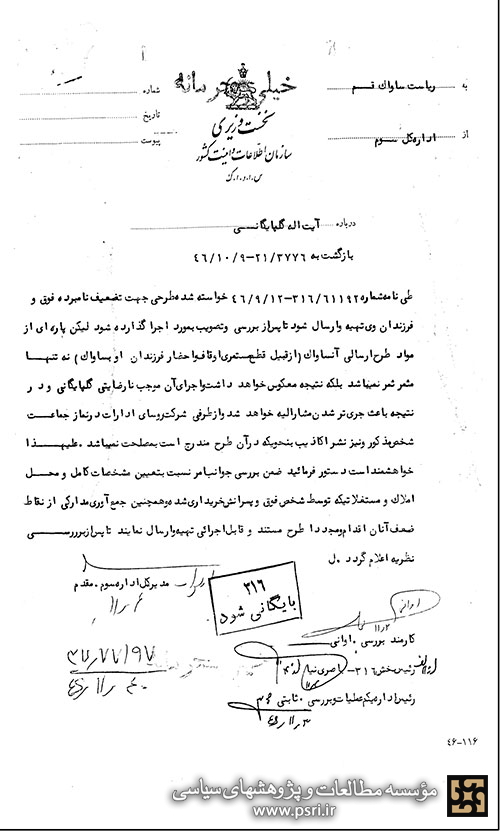 خیلی محرمانه
نخست وزیری
سازمان اطلاعات و امنیت کشور
س.ا.و.ا.ک
به ریاست ساواک قم
از اداره کل سوم
شماره
تاریخ
پیوست
درباره آیت اله گلپایگانی
بازگشت به ۲۱/۳۷۷۶-۴۶/۱۰/۹
طی نامه شماره ۳۱۶/۶۱۱۹۲-۴۶/۹/۱۲ خواسته شده طرحی جهت تضعیف نامبرده فوق و
فرزندان وی تهیه و ارسال شود تا پس از بررسی و تصویب بمورد اجرا گذارده شود لیکن پاره ای از
مواد طرح ارسالی آنساواک (از قبیل قطع مستمری اوقاف و احضار فرزندان او بساواک) نه تنها
مثمر ثمر نمیباشد بلکه نتیجه معکوس خواهد داشت و اجرای آن موجب نارضایتی گلپایگانی و در
نتیجه باعث جری تر شدن مشارالیه خواهد شد و از طرفی شرکت روسای ادارات در نماز جماعت
شخص مذکور و نیز نشر اکاذیب بنحویکه در آن طرح مندرج است بمصلحت نمیباشد. علیهذا
خواهشمند است دستور فرمائید ضمن بررسی جوانب امر نسبت بتعیین مشخصات کامل و محل
املاک و مستغلاتیکه توسط شخص فوق و پسرانش خریداری شده و همچنین جمع آوری مدارکی از نقاط
ضعف آنان اقدام و مجددا طرح مستند و قابل اجرائی تهیه و ارسال نمایند تا پس از بررسی
نظریه اعلام گردد. ل
مدیر کل اداره سوم. مقدم
۳۱۶
بایگانی شود
کارمند بررسی. اوانی
رئیس بخش ۳۱۶- ناصری نیا
رئیس اداره یکم عملیات و بررسی. ثابتی
۴۶-۱۱۶
مؤسسه مطالعات و پژوهشهای سیاسی
www.psri.ir